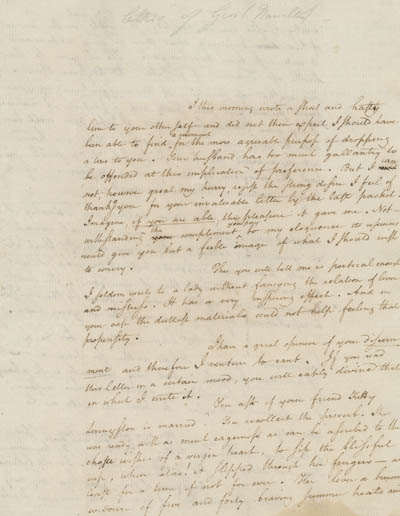 Letters of Genl Hamilton
I this morning wrote a short and hasty
line to your other self and did not then expect I should have
been able to find a moment for the more agreeable purpose of dropping
a line to you. Your husband has too much gallantry to
be offended at this implication of preference. But I can
not, however great my hurry resist the strong desire I feel of
thanking you for your invaluable letter by the last packet.
Imagine, if you are able, the pleasure it gave me. Not-
withstanding the compliment you pay to my eloquence its resources
could give you but a feeble image of what I should wish
to convey.
This you will tell me is poetical enough
I seldom write to a lady without fancying the relation of lover
and mistress. It has a very inspiring effect. And in
your case the dullest materials could not help feeling that
propensity.
I have a great opinion of your discern
ment and therefore I venture to rant. If you read
this letter in a certain mood, you will easily divine that
in which I write it.
You ask if your friend Kitty
Livingston is married? You recollect the proverb. She
was ready, with as much eagerness as can be ascribed to the
chaste wishes of a virgin heart, to sip the blissful
cup, when alas! it slipped through her fingers – at
least for a time, if not for ever. Her lover a
of five and forty, braving summer heats and